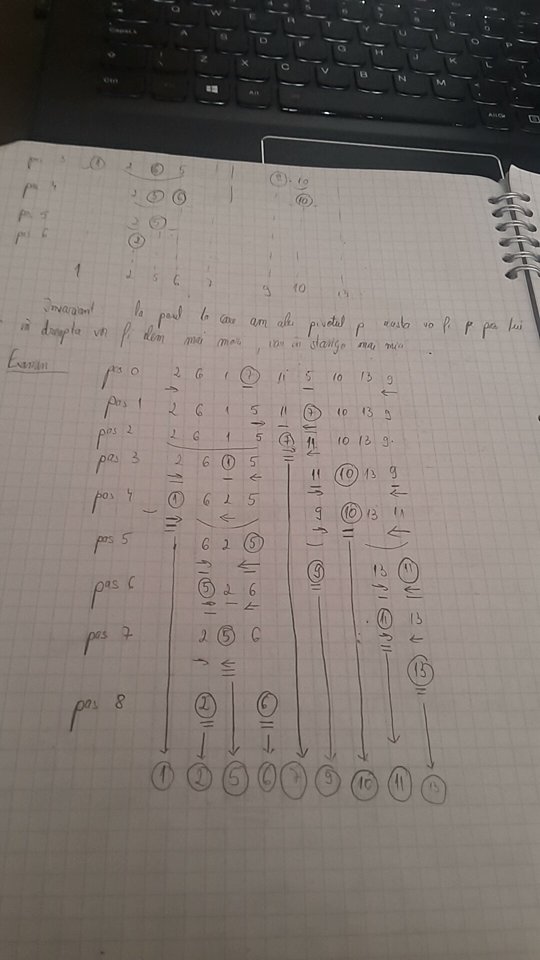 Ctrl Z X C V B N M Alt
pas 3 1 2 6 5 9 10
pas 4 2 5 6 10
pas 5 2 5
pas 6 2
1 2 5 6 7 9 10 13
Invariant la pasul la care am ales pivotul p acesta va fi pe poz lui
în dreapta vor fi elem mai mari, iar în stânga mai mici.
Examen
pas 0 2 6 1 7 11 5 10 13 9
pas 1 2 6 1 5 11 7 10 13 9
pas 2 2 6 1 5 7 11 10 13 9
pas 3 2 6 1 5 11 10 13 9
pas 4 1 6 2 5 9 10 13 11
pas 5 6 2 5 9 13 11
pas 6 5 2 6 11 13
pas 7 2 5 6 13
pas 8 2 6
1 2 5 6 7 9 10 11 13